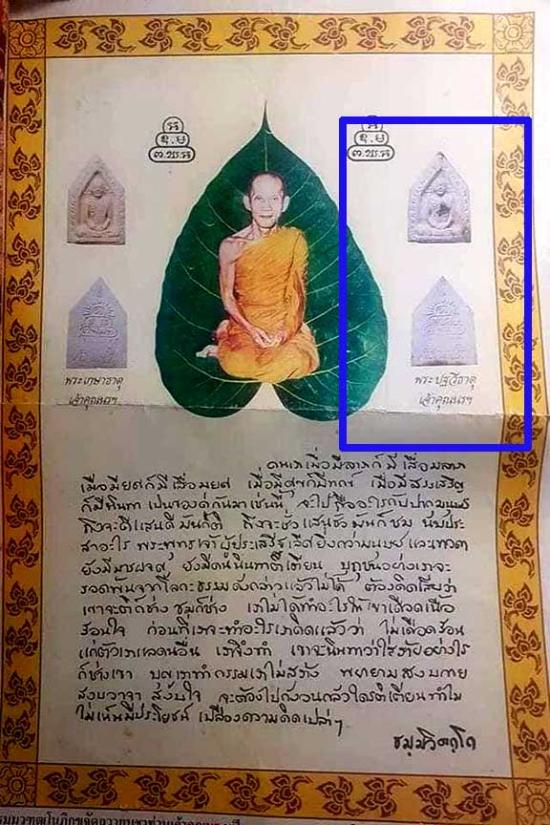 พระเกษาธาตุ
เจ้าคุณนรฯ
พระปฐวีธาตุ
เจ้าคุณนรฯ
คนเราเมื่อมีลาภก็มีเสื่อมลาภ
เมื่อมียศก็มีเสื่อมยศ เมื่อมีสุขก็มีทุกข์ เมื่อมีสรรเสริญ
ก็มีนินทา เป็นของคู่กันมาเช่นนี้ จะไปถืออะไรกับปากมนุษย์
ถึงจะดีแสนดีมันก็ติ ถึงจะชั่วแสนชั่วมันก็ชม นับประ
สาอะไร พระพุทธเจ้าผู้ประเสริฐเลิศยิ่งกว่ามนุษย์และเทวดา
ยังมีมารผจญ ยังมีคนนินทาติเตียน ปุถุชนอย่างเราจะ
รอดพ้นจากโลกธรรมดังกล่าวแล้วไม่ได้ ต้องคิดเสียว่า
เขาจะติก็ช่าง ชมก็ช่าง เราไม่ได้ทำอะไรให้เขาเดือดเนื้อ
ร้อนใจ ก่อนที่เราจะทำอะไรเราคิดแล้วว่า ไม่เดือดร้อน
แก่ตัวเราและคนอื่น เราจึงทำ เขาจะนินทาว่าใส่ร้ายอย่างไร
ก็ช่างเขา บุญเราทำกรรมเราไม่สร้าง พยายามสงบกาย
สงบวาจา สงบใจ จะต้องไปกังวลกลัวใครติเตียนทำไม
ไม่เห็นมีประโยชน์ เปลืองความคิดเปล่าๆ
ธมฺมวิตกฺโก